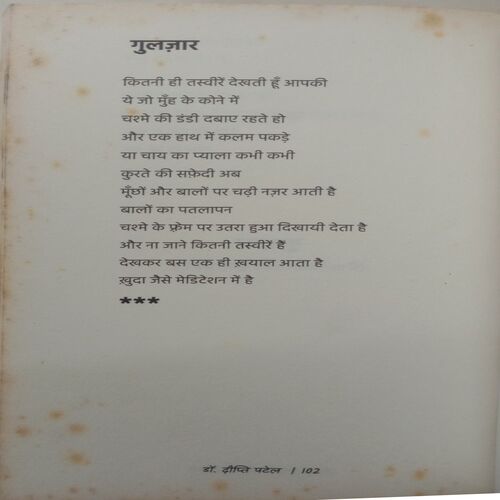 गुलज़ार
कितनी ही तस्वीरें देखती हूँ आपकी
ये जो मुँह के कोने में
चश्मे की डंडी दबाए रहते हो
और एक हाथ में कलम पकड़े
या चाय का प्याला कभी कभी
कुरते की सफ़ेदी अब
मूँछों और बालों पर चढ़ी नज़र आती है
बालों का पतलापन
चश्मे के फ़्रेम पर उतरा हुआ दिखायी देता है
और ना जाने कितनी तस्वीरें हैं
देखकर बस एक ही ख़याल आता है
ख़ुदा जैसे मेडिटेशन में है
***
डॉ. दीप्ति पटेल | 102